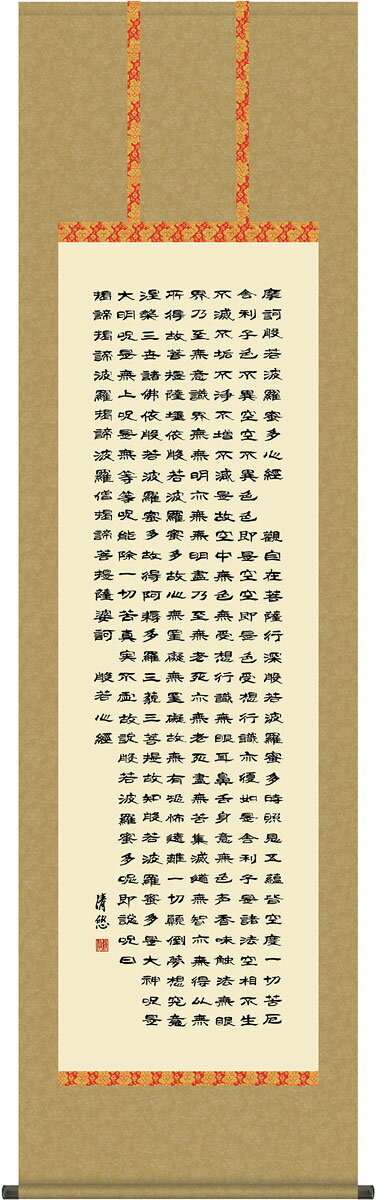 摩訶般若波羅蜜多心經　觀自在菩薩行深般若波羅蜜多時照見五蘊皆空度一切苦厄
舎利子色不異空空不異色色即是空空即是色受想行識亦復如是舎利子是諸法空相不生
不滅不垢不淨不增不減是故空中無色無受想行識無眼耳鼻舌身意無色声香味触法無眼
界乃至無意識界無無明亦無無明盡乃至無老死亦無老死盡無苦集滅道無智亦無得以無
所得故菩提薩埵依般若波羅蜜多故心無罣礙無罣礙故無有恐怖遠離一切顛倒夢想究竟
涅槃三世諸佛依般若波羅蜜多故得阿耨多羅三藐三菩提故知般若波羅蜜多是大神呪是
大明呪是無上呪是無等等呪能除一切苦真実不虚故説般若波羅蜜多呪即説呪曰
揭諦揭諦波羅揭諦波羅僧揭諦菩提薩婆訶　般若心經
清悠